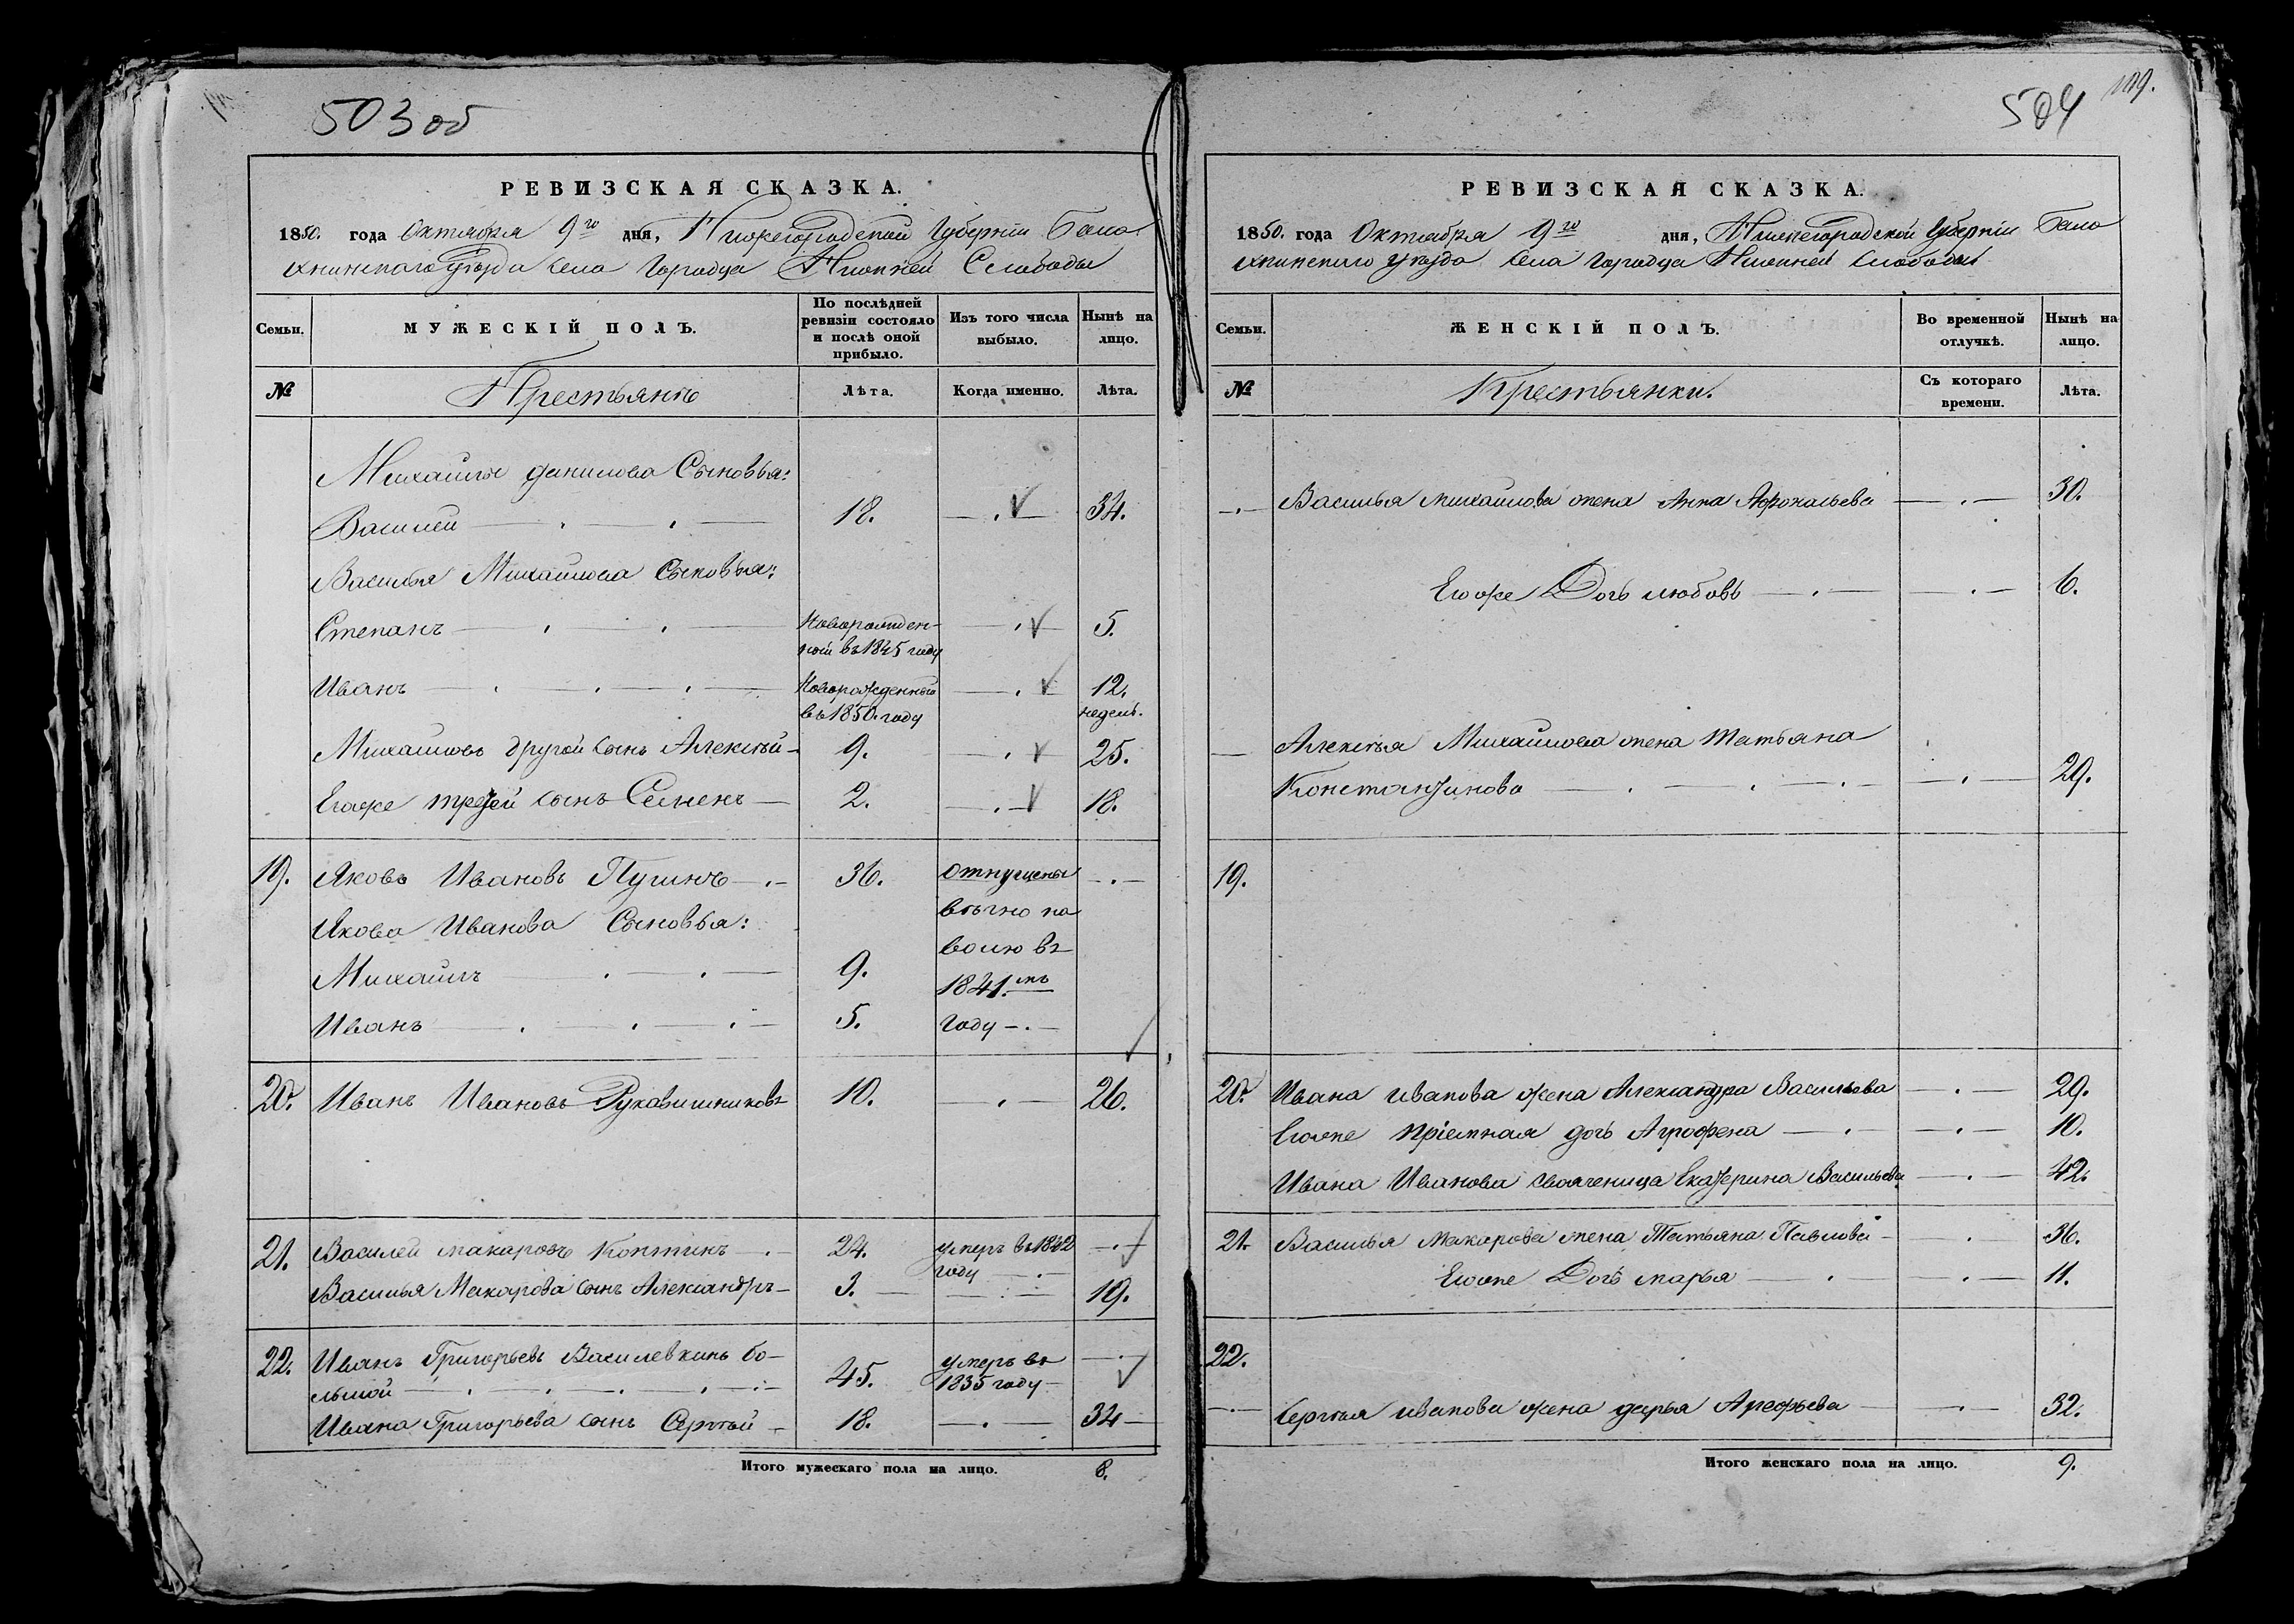 503 об
РЕВИЗСКАЯ СКАЗКА.
1850. года Октября 9го дня, Нижегородской Губернiи Бала
хнинскаго Уѣзда села Городца Нижней Слободы
Семьи.
МУЖЕСКIЙ ПОЛЪ.
По послѣдней ревизiи состояло и послѣ оной прибыло.
Изъ того числа выбыло.
Нынѣ на лицо.
№
Крестьянъ
Лѣта.
Когда именно.
Лѣта.
Михайлы Данилова Сыновья:
Василей 18. 34.
Василья Михайлова Сыновья:
Степанъ Новорожден-
ной въ 1845 году 5.
Иванъ Новорожденный
въ 1850. году 12.
недель.
Михайловъ другой сынъ Алексѣй 9. 25.
Егоже третей сынъ Семенъ 2. 18.
19. Яковъ Ивановъ Пугинъ 36. отпущены
Якова Иванова Сыновья: вѣчно на
Михайлъ 9. волю въ
1841.мъ
Иванъ 5. году
20. Иванъ Ивановъ Рукавишниковъ 10. 26.
21. Василей Макаровъ Коптикъ 24. умеръ въ 1842
году
Василья Макарова сынъ Александръ 3. 19.
22. Иванъ Григорьевъ Василевкинъ бо-
льшой 45. умеръ въ
1835 году
Ивана Григорьева сынъ Сергѣй 18. 34
Итого мужескаго пола на лицо. 8.
504
109.
РЕВИЗСКАЯ СКАЗКА.
1850. года Октября 9го дня, Нижегородской Губернiи Бала
хнинскаго уѣзда села Городца Нижней Слободы
Семьи.
ЖЕНСКIЙ ПОЛЪ.
Во временной отлучкѣ.
Нынѣ на лицо.
№
Крестьянки.
Съ котораго времени.
Лѣта.
Василья Михайлова жена Анна Афонасьева 30.
Егоже Дочь Любовь 6.
Алексѣя Михайлова жена Татьяна
Константинова 29.
19.
20. Ивана Иванова жена Александра Васильева 29.
Егоже прiемная дочь Аграфена 10.
Ивана Иванова своячетица Екатерина Васильева 42.
21. Василья Макарова жена Татьяна Павлова 36.
Егоже Дочь Марья 11.
22.
Сергѣя Иванова жена Дарья Арефьева 32.
Итого женскаго пола на лицо. 9.